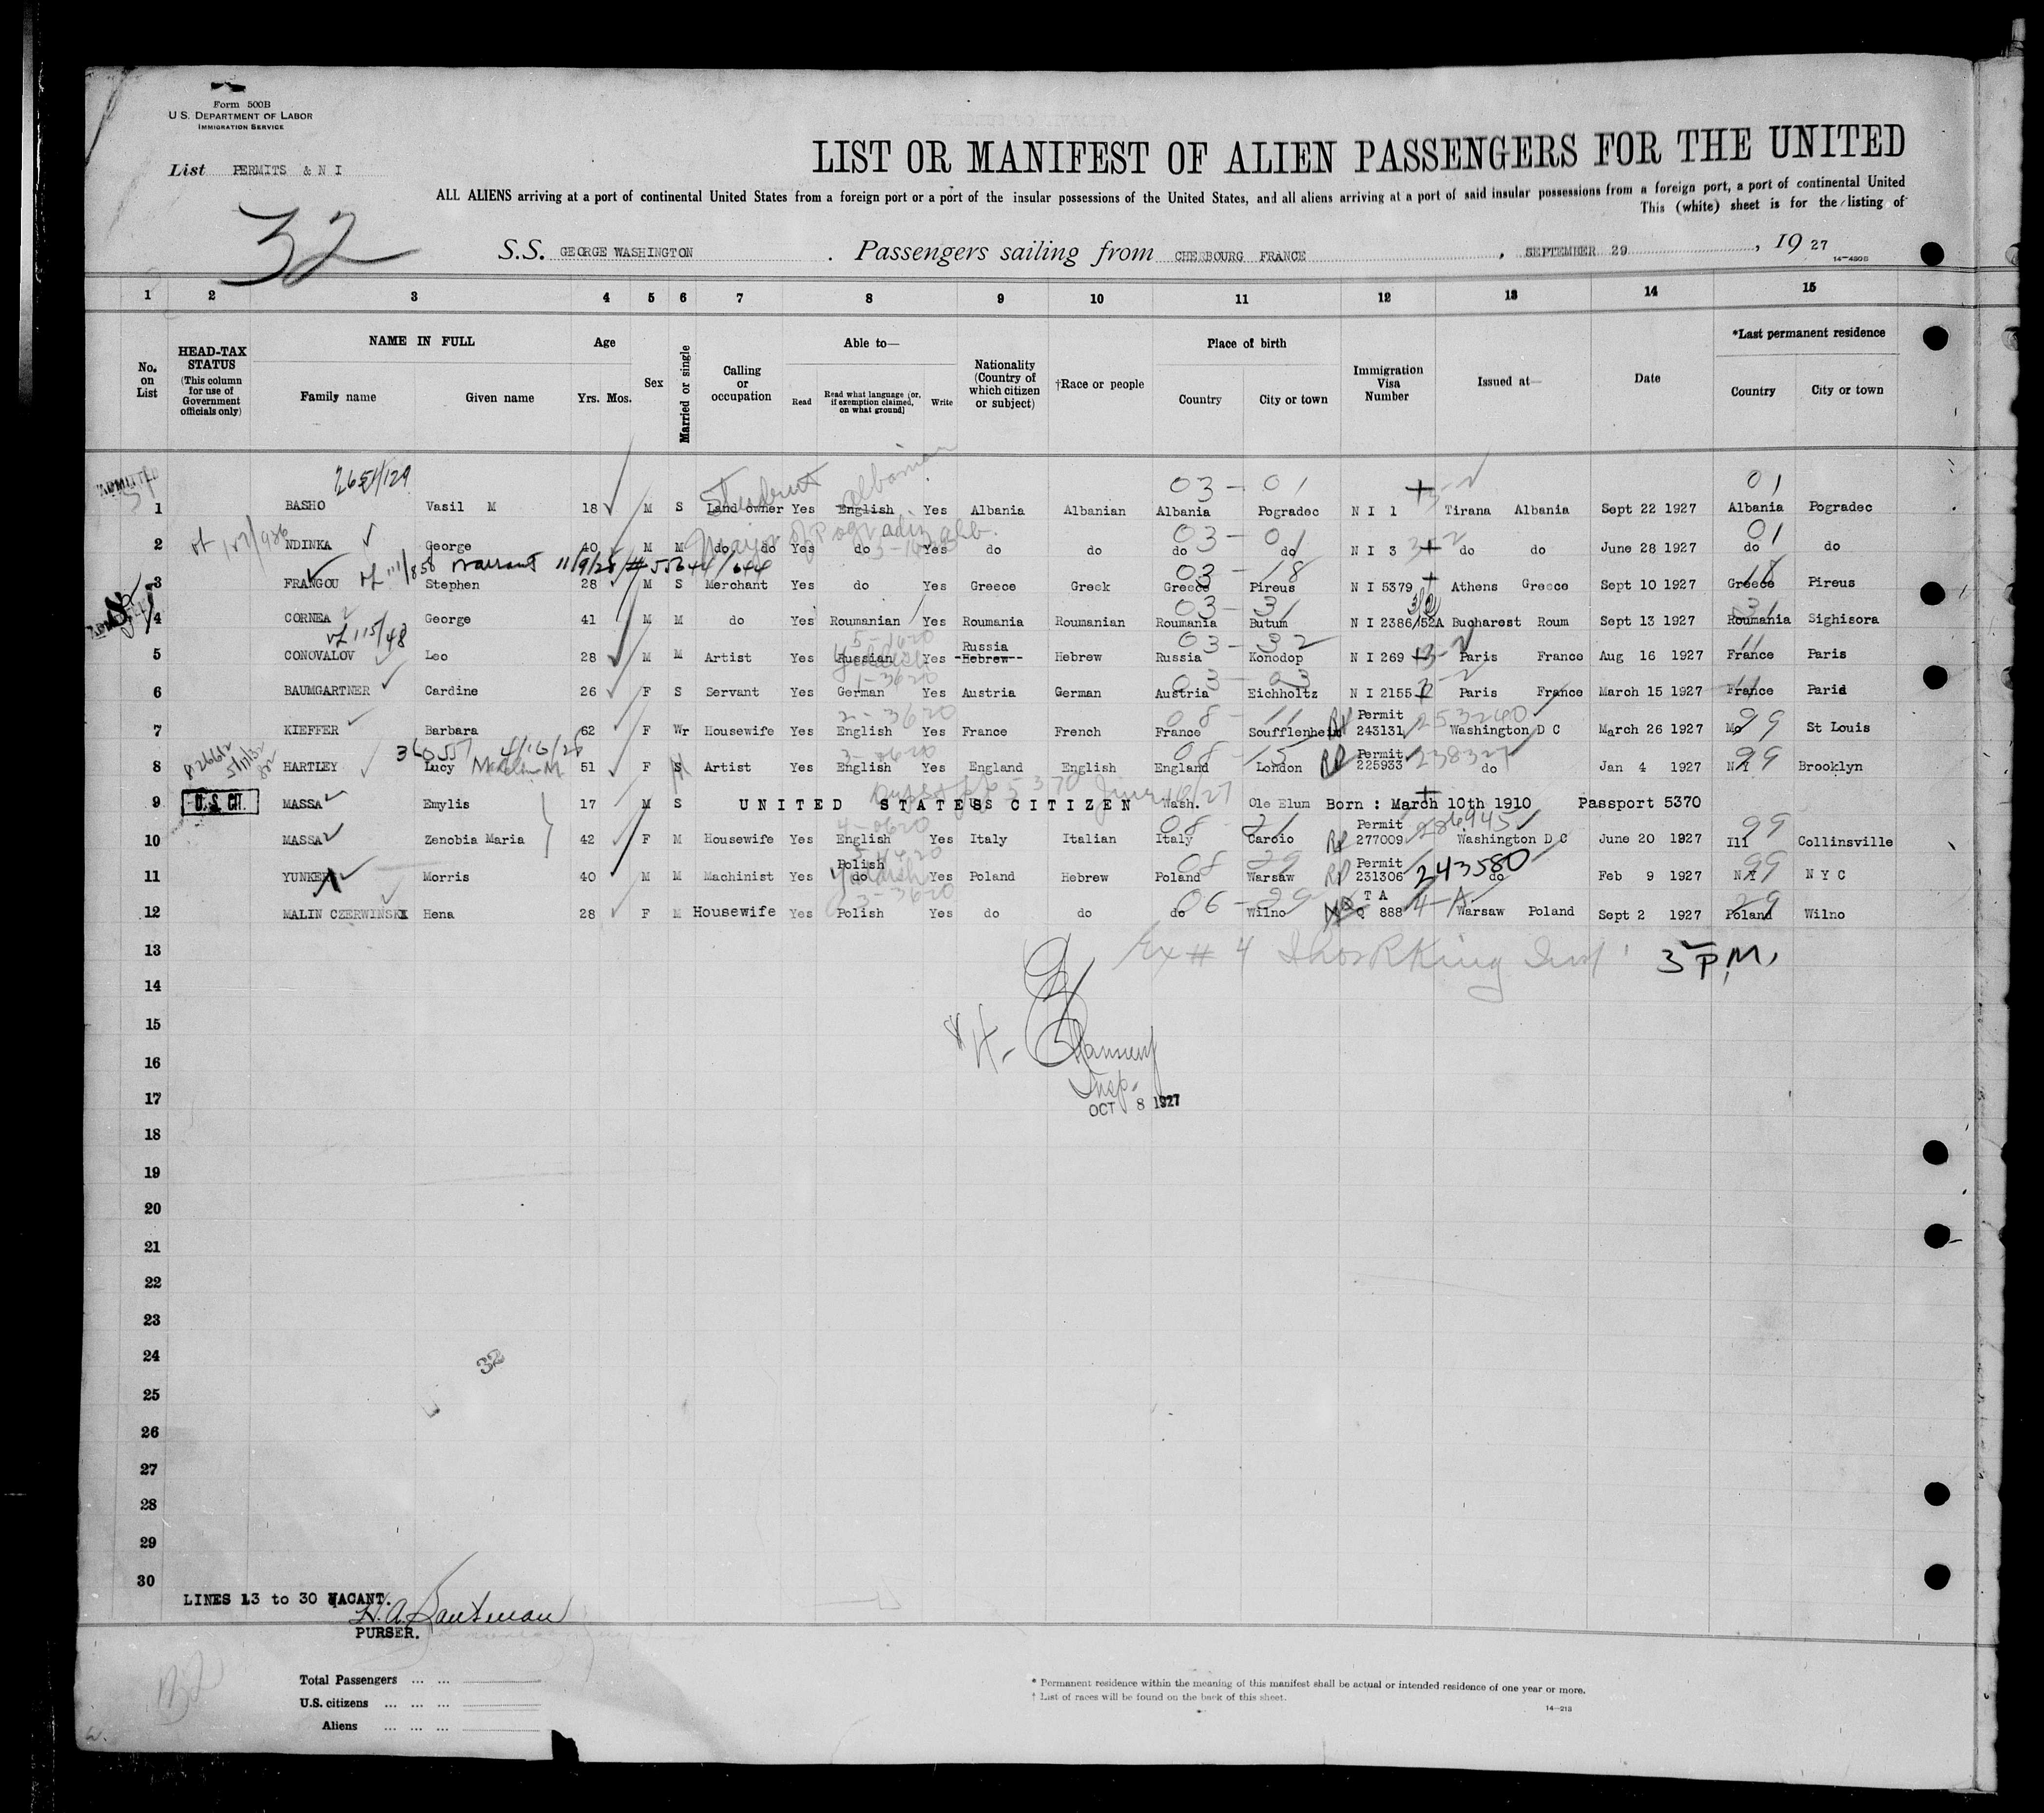 Form 500B
U.S. DEPARTMENT OF LABOR
IMMIGRATION SERVICE
List PERMITS & N I
32
LIST OR MANIFEST OF ALIEN PASSENGERS FOR THE UNITED
ALL ALIENS arriving at a port of continental United States from a foreign port or a port of the insular possessions of the United States, and all aliens arriving at a port of said insular possessions from a foreign port, a port of continental United
This (white) sheet is for the listing of
S.S. GEORGE WASHINGTON . Passengers sailing from CHERBOURG FRANCE , SEPTEMBER 29 , 19 27
14-430B
1 2 3 4 5 6 7 8 9 10 11 12 13 14 15
No. on List
HEAD-TAX STATUS (This column for use of Government officials only)
NAME IN FULL
Family name Given name
Age
Yrs. Mos.
Sex
Married or single
Calling or occupation
Able to—
Read
Read what language (or, if exemption claimed, on what ground)
Write
Nationality (Country of which citizen or subject)
†Race or people
Place of birth
Country City or town
Immigration Visa Number
Issued at—
Date
*Last permanent residence
Country City or town
ADMITTED
Student Albanian 03 - 01 3-2 01
1 BASHO Vasil M 18 M S Land owner Yes English Yes Albania Albanian Albania Pogradec N I 1 Tirana Albania Sept 22 1927 Albania Pogradec
Major of Pogradec Alb. 03 - 01 3-2 01
2 NDINKA George 40 M M do do Yes do Yes do do do do N I 3 do do June 28 1927 do do
vf 111/858 Warrant 11/9/28 # 55644/644 03 - 18 18
3 FRANGOU Stephen 28 M S Merchant Yes do Yes Greece Greek Greece Pireus N I 5379 Athens Greece Sept 10 1927 Greece Pireus
03 - 31 31
4 CORNEA George 41 M M do Yes Roumanian Yes Roumania Roumanian Roumania Butum N I 2386/52A Bucharest Roum Sept 13 1927 Roumania Sighisora
vf 115/48 5-1620 Russia 03 - 32 3-2 11
5 CONOVALOV Leo 28 M M Artist Yes Russian Yes Hebrew Hebrew Russia Konodop N I 269 Paris France Aug 16 1927 France Paris
1-3620 03 - 03 3-2 11
6 BAUMGARTNER Cardine 26 F S Servant Yes German Yes Austria German Austria Eichholtz N I 2155 Paris France March 15 1927 France Parid
2-3620 08 - 11 RP Permit 253240 99
7 KIEFFER Barbara 62 F Wr Housewife Yes English Yes France French France Soufflenheim 243131 Washington D C March 26 1927 Mo St Louis
36057 4/16/28 3-0620 08 - 15 RP Permit 238327 99
8 HARTLEY Lucy 51 F S Artist Yes English Yes England English England London 225933 do Jan 4 1927 N Y Brooklyn
U.S. CIT.
9 MASSA Emylis 17 M S UNITED STATES CITIZEN Wash. Cle Elum Born : March 10th 1910 Passport 5370
4-0620 08 - 21 RP Permit 286945 99
10 MASSA Zenobia Maria 42 F M Housewife Yes English Yes Italy Italian Italy Caroio 277009 Washington D C June 20 1927 Ill Collinsville
Polish 08 29 RP Permit 243580 99
11 YUNKER Morris 40 M M Machinist Yes do Yes Poland Hebrew Poland Warsaw 231306 do Feb 9 1927 N Y N Y C
3-3620 06 - 29 T A 4-A 29
12 MALIN CZERWINSKI Hena 28 F M Housewife Yes Polish Yes do do do Wilno Q 888 Warsaw Poland Sept 2 1927 Poland Wilno
13 Ex # 4 3 P.M.
14
15
16
Insp.
17 OCT 8 1927
18
19
20
21
22
23
24
32
25
26
27
28
29
30
LINES 13 to 30 VACANT.
PURSER.
Total Passengers ... ...
U.S. citizens ... ... ...
Aliens ... ... ...
* Permanent residence within the meaning of this manifest shall be actual or intended residence of one year or more.
† List of races will be found on the back of this sheet.
14-213